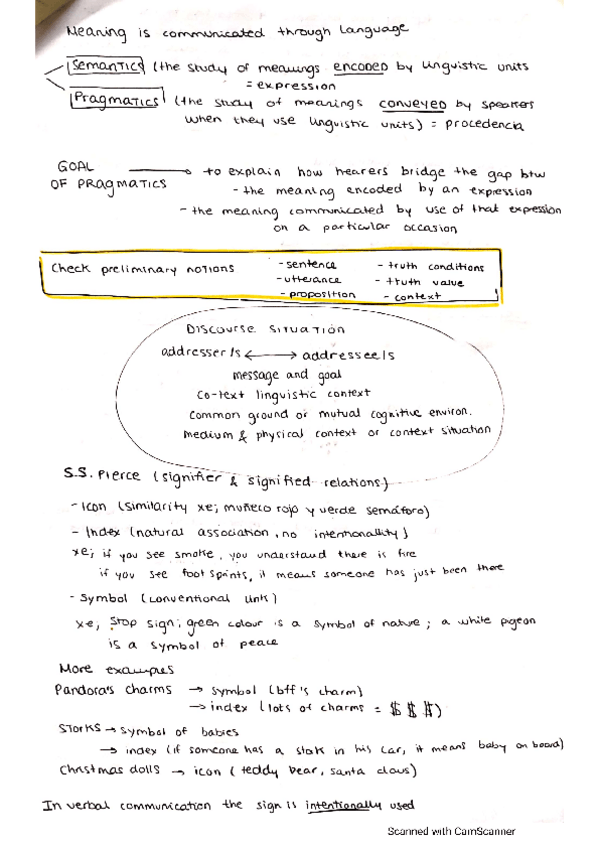 Meaning is communicated through language
Semantics (the study of meanings encoded by linguistic units
= expression
Pragmatics (the study of meanings conveyed by speakers
when they use linguistic units) = procedencia
GOAL OF PRAGMATICS → to explain how hearers bridge the gap btw
- the meaning encoded by an expression
- the meaning communicated by use of that expression
on a particular occasion
Check preliminary notions
- sentence - truth conditions
- utterance - truth value
- proposition - context
DISCOURSE SITUATION
addresser/s ↔ addressee/s
message and goal
co-text linguistic context
common ground or mutual cognitive environ.
Medium & physical context or context situation
S.S. Pierce (signifier & signified relations)
- Icon (similarity xe; muñeco rojo y verde semáforo)
- Index (natural association, no intentionallity)
xe; if you see smoke, you understand there is fire
if you see footsprints, it means someone has just been there
- Symbol (conventional link)
xe; Stop sign; green colour is a symbol of nature; a white pigeon
is a symbol of peace
More examples
Pandora's charms → symbol (bff's charm)
→ index (lots of charms = $ $ $)
Storks → symbol of babies
→ index (if someone has a stork in his car, it means baby on board)
Christmas dolls → icon (teddy bear, santa claus)
In verbal communication the sign is intentionally used
Scanned with CamScanner